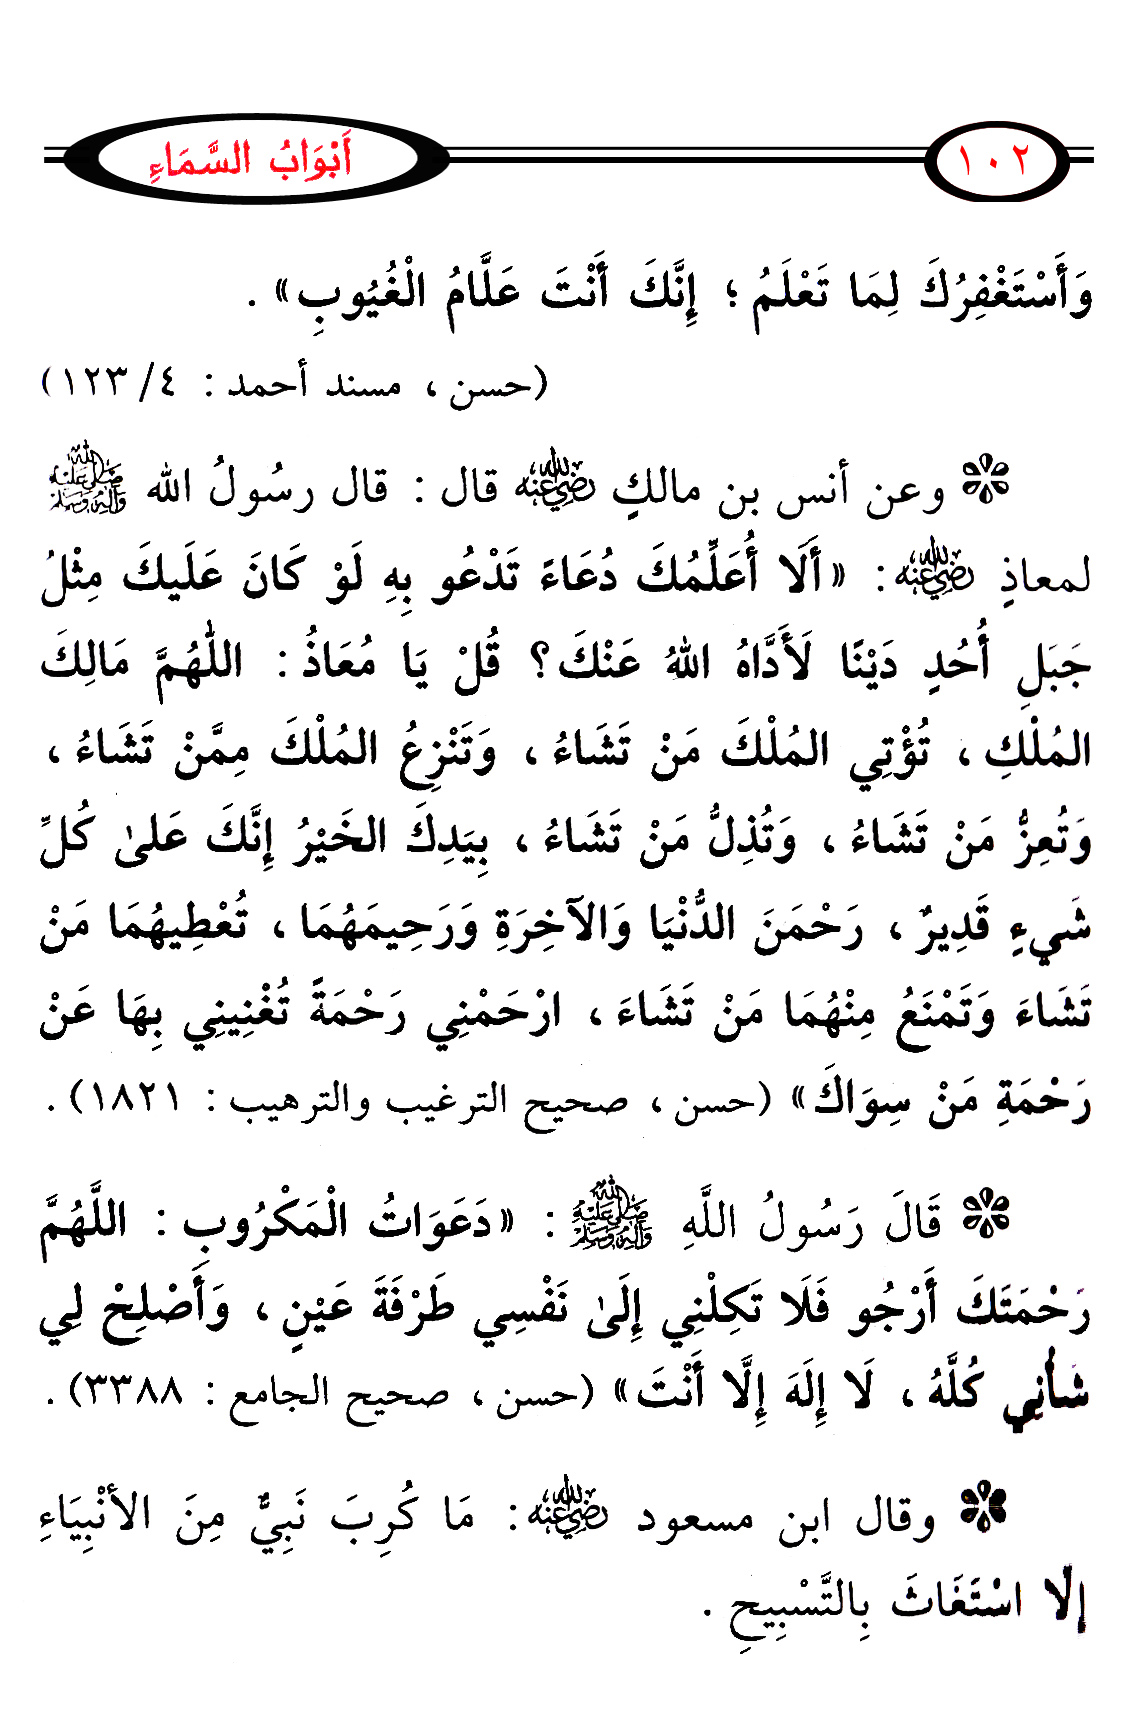 ١٠٢
أَبْوَابُ السَّمَاءِ
وَأَسْتَغْفِرُكَ لِمَا تَعْلَمُ ؛ إِنَّكَ أَنْتَ عَلَّامُ الْغُيُوبِ» .
(حسن ، مسند أحمد : ٤/ ١٢٣)
وعن أنس بن مالكٍ رضي الله عنه قال : قال رسُولُ الله صلى الله عليه وآله وسلم
لمعاذٍ رضي الله عنه : «أَلَا أُعَلِّمُكَ دُعَاءً تَدْعُو بِهِ لَوْ كَانَ عَلَيكَ مِثْلُ
جَبَلِ أُحُدٍ دَيْنًا لَأَدَّاهُ اللهُ عَنْكَ؟ قُلْ يَا مُعَاذُ : اللّٰهُمَّ مَالِكَ
المُلْكِ ، تُؤْتِي المُلْكَ مَنْ تَشَاءُ ، وَتَنْزِعُ المُلْكَ مِمَّنْ تَشَاءُ ،
وَتُعِزُّ مَنْ تَشَاءُ ، وَتُذِلُّ مَنْ تَشَاءُ ، بِيَدِكَ الخَيْرُ إِنَّكَ عَلىٰ كُلِّ
شَيءٍ قَدِيرٌ ، رَحْمَنَ الدُّنْيَا وَالآخِرَةِ وَرَحِيمَهُمَا ، تُعْطِيهُمَا مَنْ
تَشَاءَ وَتَمْنَعُ مِنْهُمَا مَنْ تَشَاءَ ، ارْحَمْنِي رَحْمَةً تُغْنِينِي بِهَا عَنْ
رَحْمَةِ مَنْ سِوَاكَ» (حسن ، صحيح الترغيب والترهيب : ١٨٢١) .
قَالَ رَسُولُ اللَّهِ صلى الله عليه وآله وسلم : «دَعَوَاتُ الْمَكْرُوبِ : اللَّهُمَّ
رَحْمَتَكَ أَرْجُو فَلَا تَكِلْنِي إِلَىٰ نَفْسِي طَرْفَةَ عَيْنٍ ، وَأَصْلِحْ لِي
شَأْنِي كُلَّهُ ، لَا إِلَهَ إِلَّا أَنْتَ» (حسن ، صحيح الجامع : ٣٣٨٨) .
وقال ابن مسعود رضي الله عنه : مَا كُرِبَ نَبِيٌّ مِنَ الأنْبِيَاءِ
إلَّا اسْتَغَاثَ بِالتَّسْبِيحِ .